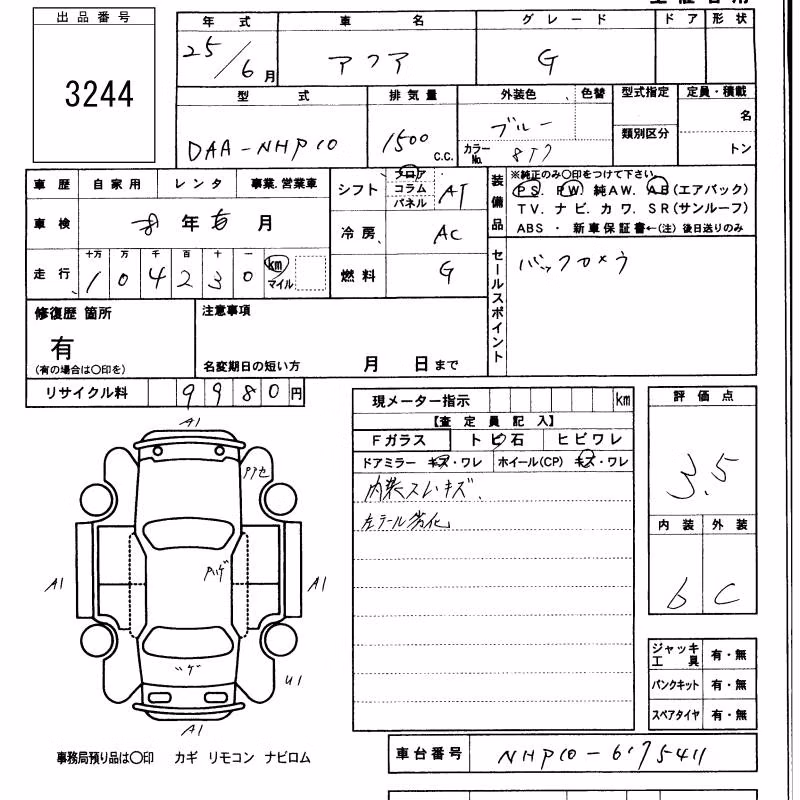 出品番号
3244
年式 車名 グレード ドア 形状
25/6月 アクア G
型式 排気量 外装色 色替 型式指定 定員・積載
DAA-NHP10 1500 C.C. ブルー 名
カラーNo. 8T7 類別区分 トン
車歴 自家用 レンタ 事業.営業車
シフト フロア コラム パネル AT
車検 年 月
冷房 AC
走行 十万 万 千 百 十 一
104230 km マイル
燃料 G
装備品
※純正のみ○印をつけて下さい
PS. PW. 純AW. AB(エアバック)
TV. ナビ. カワ. SR(サンルーフ)
ABS ・ 新車保証書←(注) 後日送りのみ
セールスポイント
バックカメラ
修復歴 箇所
有
(有の場合は○印を)
注意事項
名変期日の短い方 月 日まで
リサイクル料 9980円
現メーター指示 km
【査定員記入】
Fガラス トビ石 ヒビワレ
ドアミラー キズ・ワレ ホイール(CP) キズ・ワレ
内装スレキズ、
左テール劣化
評価点
3.5
内装 外装
b C
A1
アアセ
A1
ハゲ
A1
ハゲ
U1
A1
ジャッキ工具 有・無
パンクキット 有・無
スペアタイヤ 有・無
事務局預り品は○印 カギ リモコン ナビロム
車台番号 NHP10-6175411